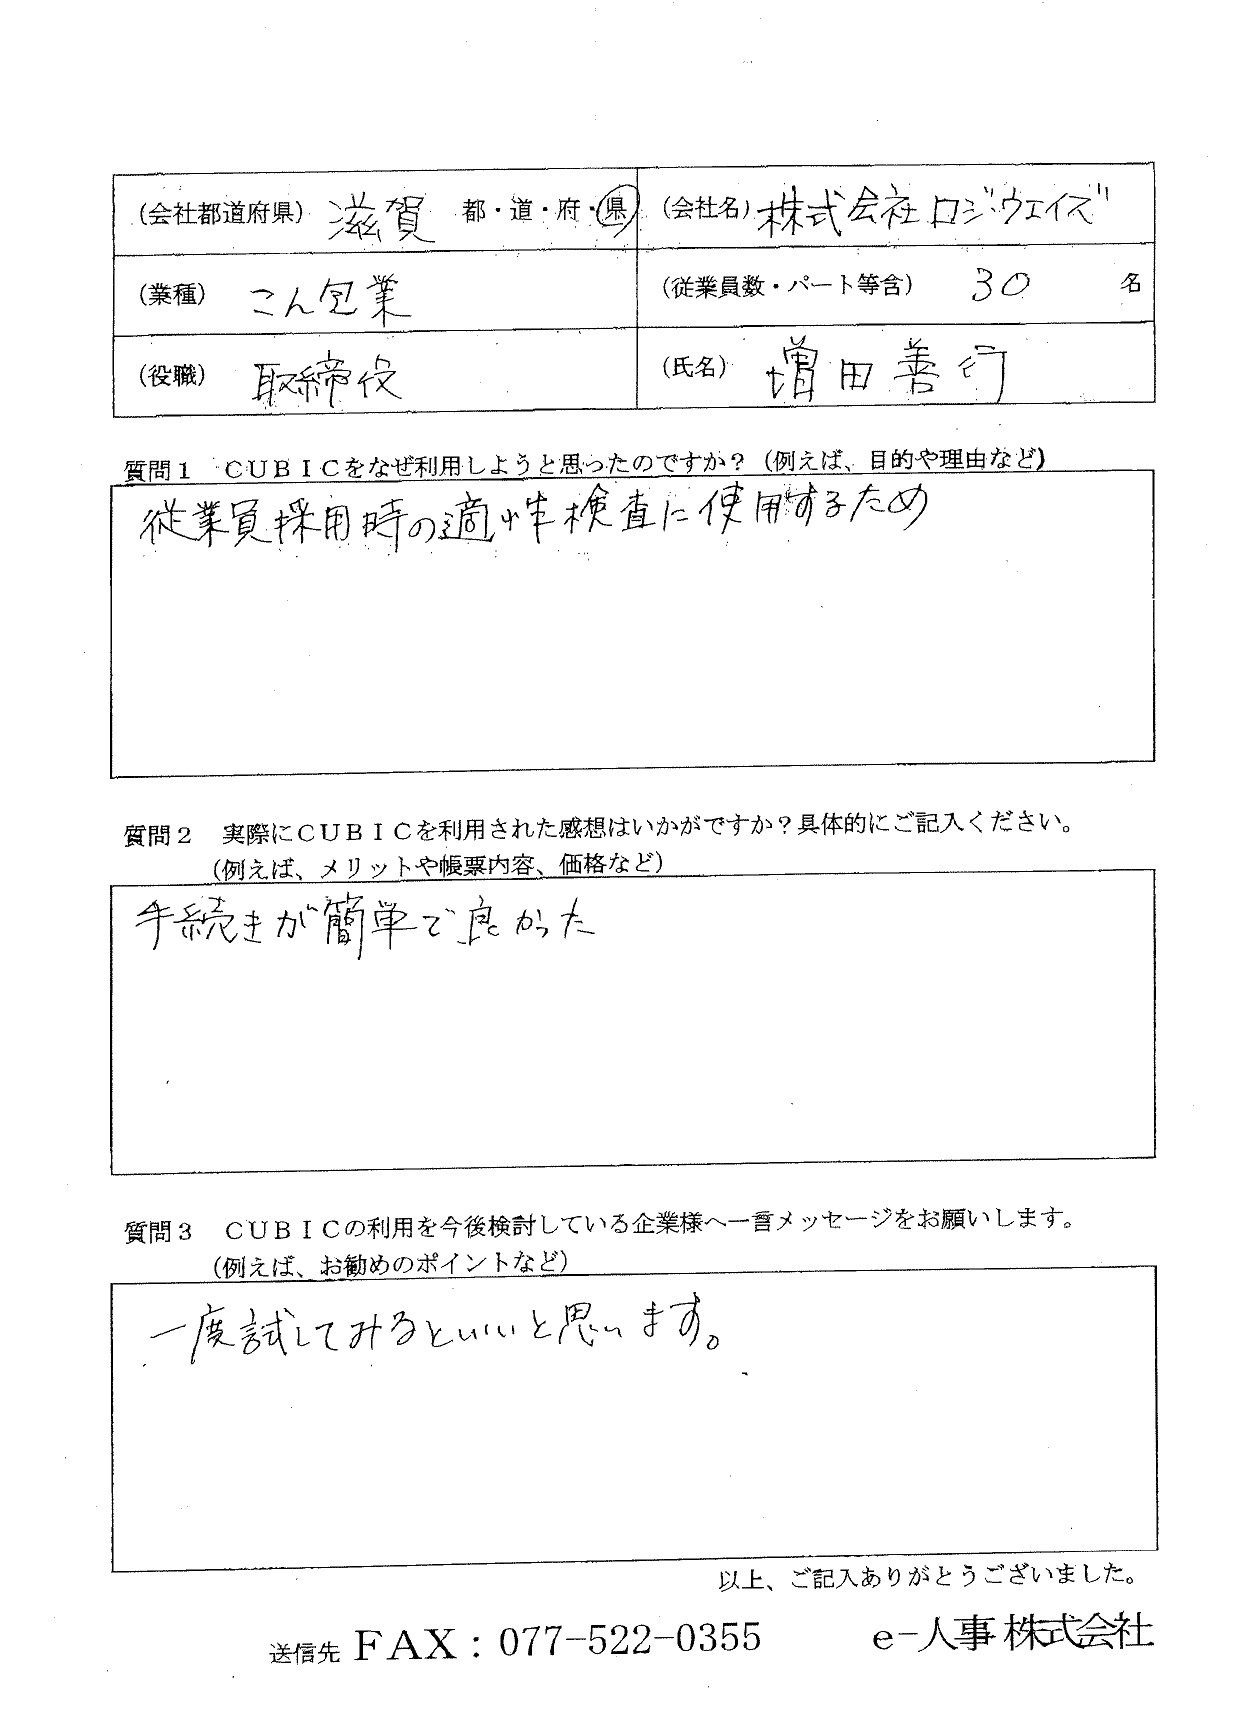 (会社都道府県) 滋賀 都・道・府・県 (会社名) 株式会社ロジウェイズ
(業種) こん包業 (従業員数・パート等含) 30 名
(役職) 取締役 (氏名) 増田善行
質問1 CUBICをなぜ利用しようと思ったのですか？(例えば、目的や理由など)
従業員採用時の適性検査に使用するため
質問2 実際にCUBICを利用された感想はいかがですか？具体的にご記入ください。
(例えば、メリットや帳票内容、価格など)
手続きが簡単で良かった
質問3 CUBICの利用を今後検討している企業様へ一言メッセージをお願いします。
(例えば、お勧めのポイントなど)
一度試してみるといいと思います。
以上、ご記入ありがとうございました。
送信先 FAX：077-522-0355 e-人事株式会社